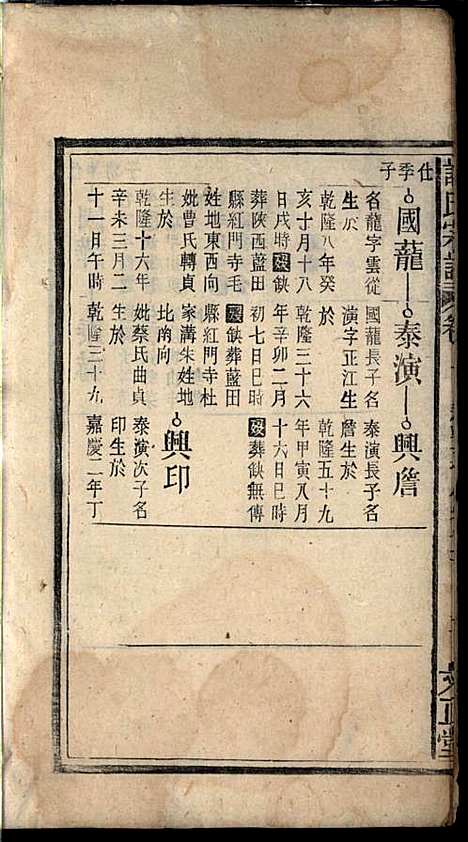 仕季子
國龍
名龍字雲從
生於
乾隆八年癸
亥十月十八
日戌時歿缺
葬陝西藍田
縣紅門寺毛
姓地東西向
妣曹氏轉貞
生於
乾隆十六年
辛未三月二
十一日午時
泰演
國龍長子名
演字正江生
於
乾隆三十六
年辛卯二月
初七日巳時
歿缺葬藍田
縣紅門寺杜
家溝朱姓地
比南向
妣蔡氏曲貞
生於
乾隆三十九
興詹
泰演長子名
詹生於
乾隆五十九
年甲寅八月
十六日巳時
歿葬缺無傳
興印
泰演次子名
印生於
嘉慶二年丁